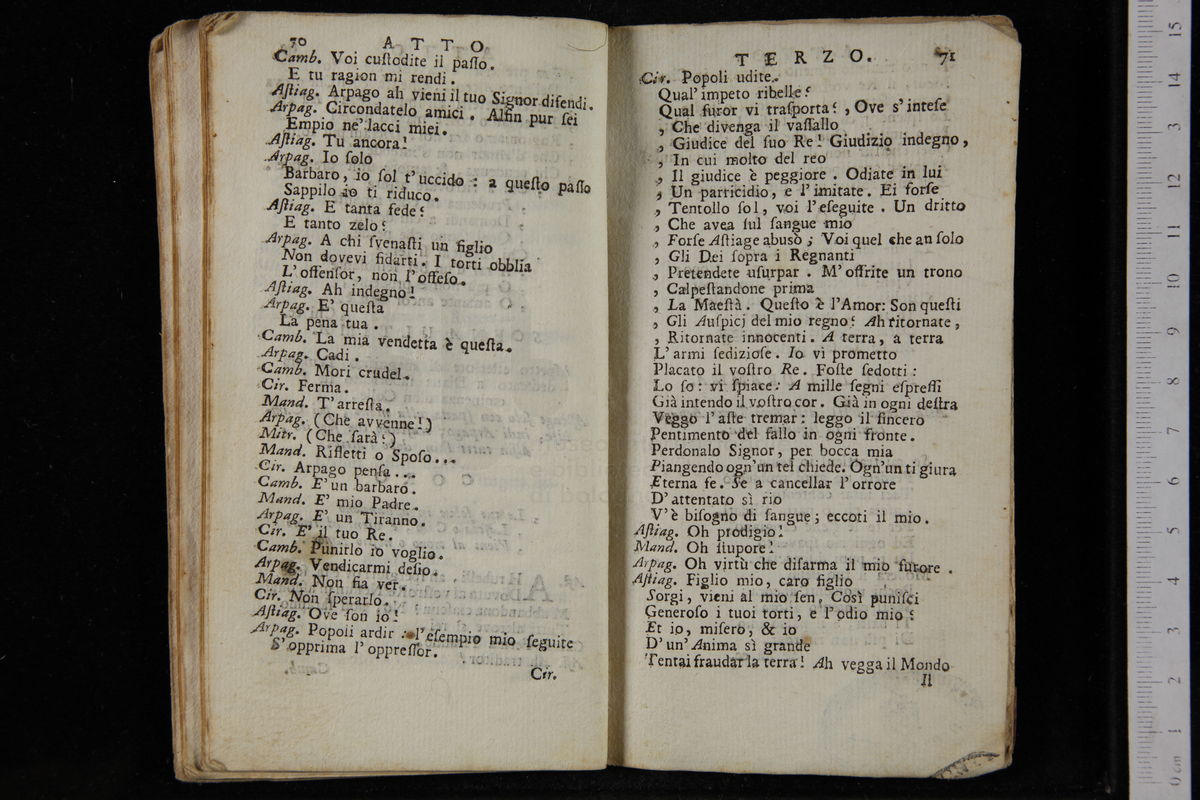 70 ATTO
Camb. Voi cuſtodite il paſſo.
E tu ragion mi rendi.
Aſtiag. Arpago ah vieni il tuo Signor difendi.
Arpag. Circondatelo amici. Alfin pur ſei
Empio ne' lacci miei.
Aſtiag. Tu ancora!
Arpag. Io ſolo
Barbaro, io ſol t'uccido : a queſto paſſo
Sappilo io ti riduco.
Aſtiag. E tanta fede?
E tanto zelo?
Arpag. A chi ſvenaſti un figlio
Non dovevi fidarti. I torti obblia
L'offenſor, non l'offeſo.
Aſtiag. Ah indegno!
Arpag. E' queſta
La pena tua.
Camb. La mia vendetta è queſta.
Arpag. Cadi.
Camb. Mori crudel.
Cir. Ferma.
Mand. T'arreſta.
Arpag. (Che avvenne!)
Mitr. (Che ſarà?)
Mand. Rifletti o Spoſo...
Cir. Arpago penſa...
Camb. E' un barbaro.
Mand. E' mio Padre.
Arpag. E' un Tiranno.
Cir. E' il tuo Re.
Camb. Punirlo io voglio.
Arpag. Vendicarmi deſio.
Mand. Non fia ver.
Cir. Non ſperarlo.
Aſtiag. Ove ſon io!
Arpag. Popoli ardir : l'eſempio mio ſeguite
S'opprima l'oppreſſor.
Cir.
TERZO. 71
Cir. Popoli udite.
Qual' impeto ribelle?
Qual furor vi traſporta? , Ove s'inteſe
, Che divenga il vaſſallo
, Giudice del ſuo Re! Giudizio indegno,
, In cui molto del reo
, Il giudice è peggiore. Odiate in lui
, Un parricidio, e l'imitate. Ei forſe
, Tentollo ſol, voi l'eſeguite. Un dritto
, Che avea ſul ſangue mio
, Forſe Aſtiage abusò ; Voi quel che an ſolo
, Gli Dei ſopra i Regnanti
, Pretendete uſurpar. M'offrite un trono
, Calpeſtandone prima
, La Maeſtà. Queſto è l'Amor: Son queſti
, Gli Auſpicj del mio regno? Ah ritornate,
, Ritornate innocenti. A terra, a terra
L'armi ſedizioſe. Io vi prometto
Placato il voſtro Re. Foſte ſedotti :
Lo ſo : vi ſpiace: A mille ſegni eſpreſſi
Già intendo il voſtro cor. Già in ogni deſtra
Veggo l'aſte tremar : leggo il ſincero
Pentimento del fallo in ogni fronte.
Perdonalo Signor, per bocca mia
Piangendo ogn'un tel chiede. Ogn'un ti giura
Eterna fe. Se a cancellar l'orrore
D'attentato sì rio
V'è biſogno di ſangue; eccoti il mio.
Aſtiag. Oh prodigio!
Mand. Oh ſtupore!
Arpag. Oh virtù che diſarma il mio furore.
Aſtiag. Figlio mio, caro figlio
Sorgi, vieni al mio ſen. Così puniſci
Generoſo i tuoi torti, e l'odio mio?
Et io, miſero, & io
D'un'Anima sì grande
Tentai fraudar la terra! Ah vegga il Mondo
Il